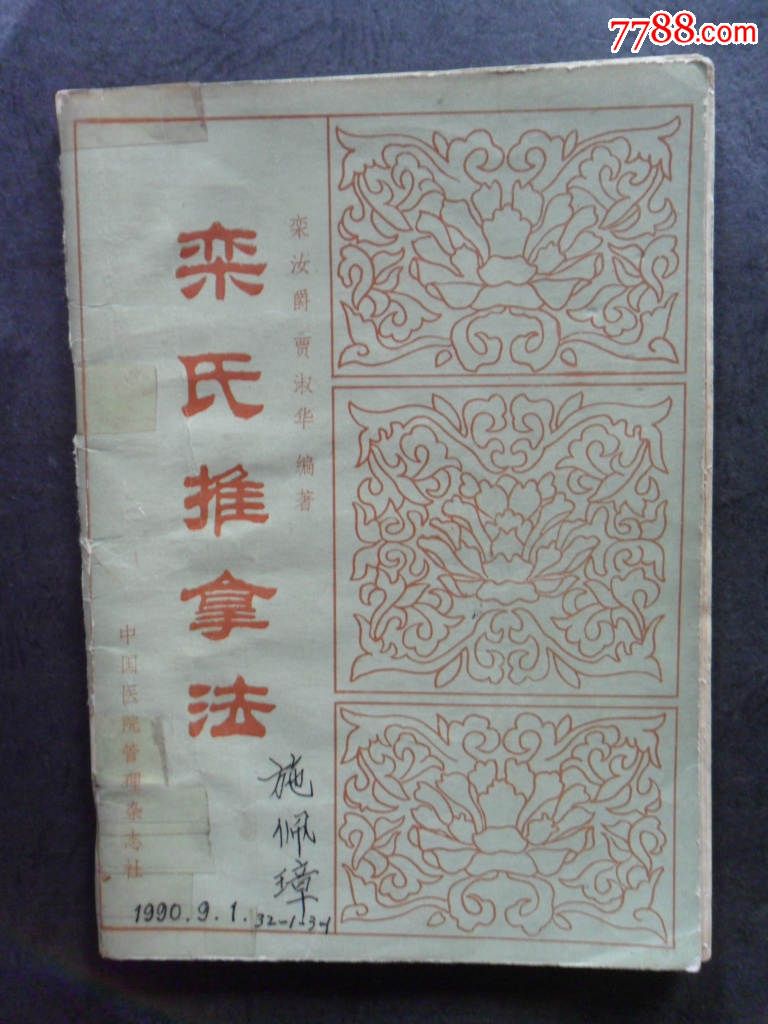 7788.com
栾氏推拿法
栾汝爵 贾淑华 编著
中国医院管理杂志社
施佩璋
1990.9.1.
32-1-3-1